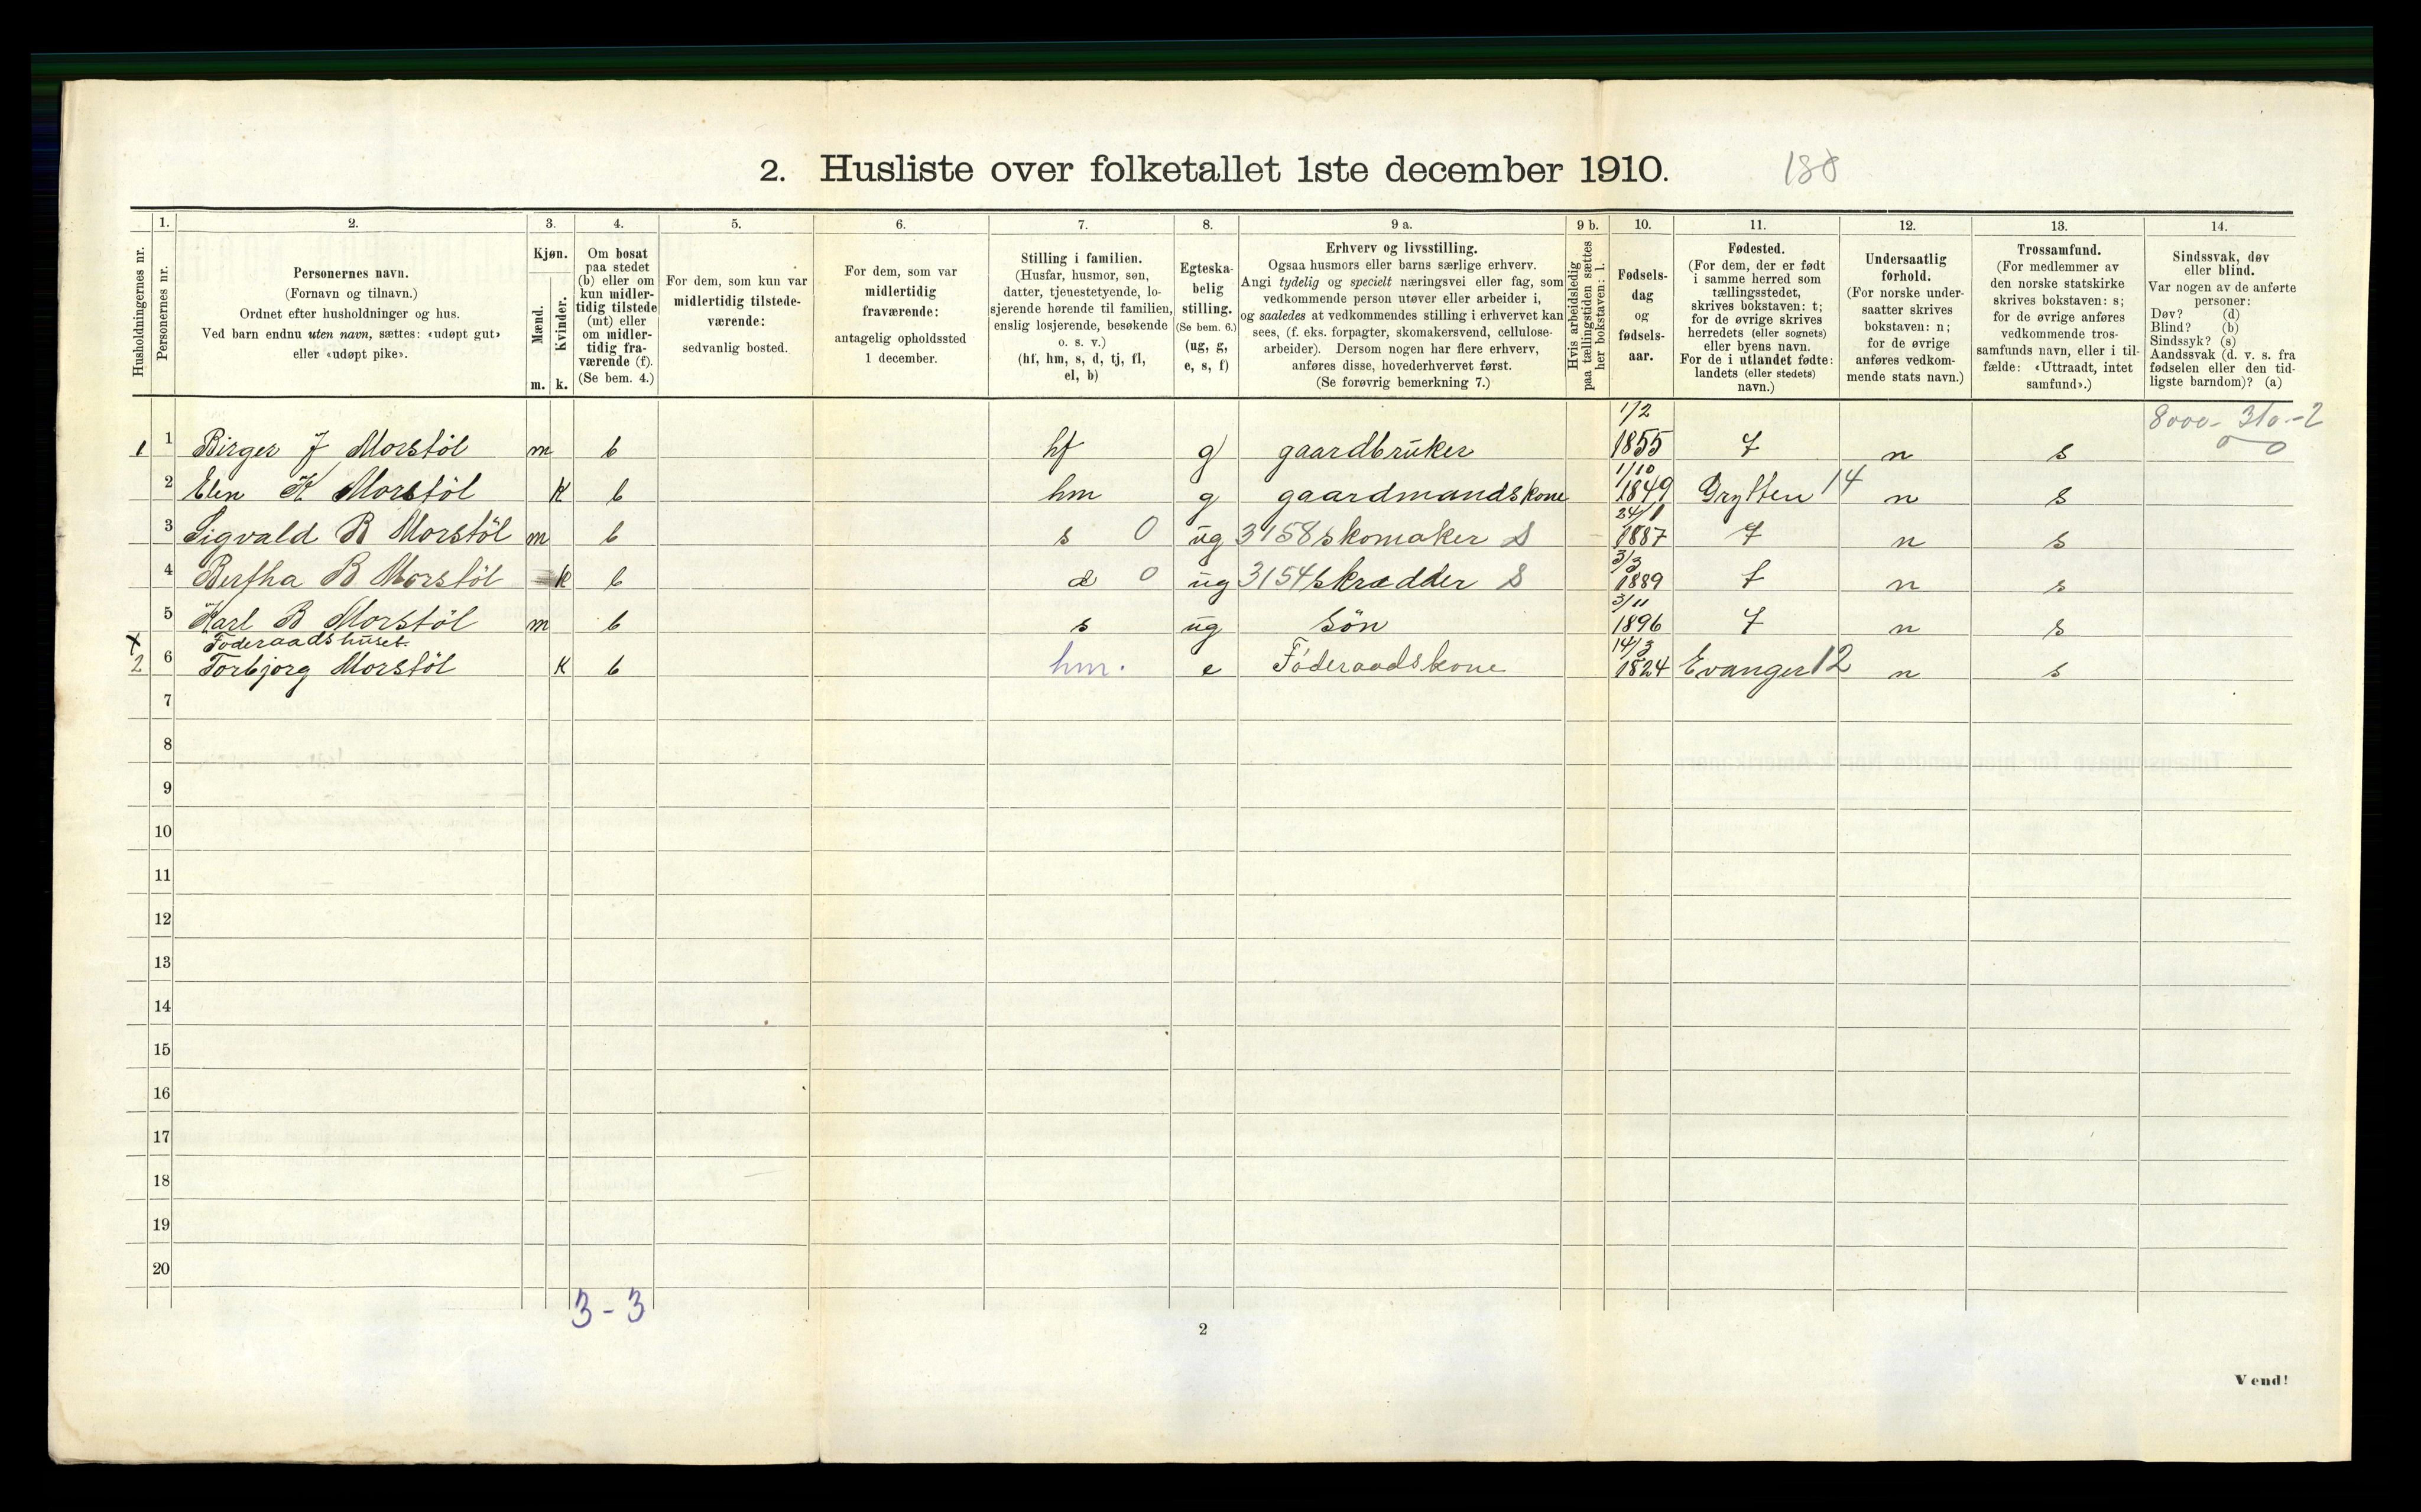 2. Husliste over folketallet 1ste december 1910. 188
1. 2. 3. 4. 5. 6. 7. 8. 9 a. 9 b. 10. 11. 12. 13. 14.
Husholdningernes nr.
Personernes nr.
Personernes navn.
(Fornavn og tilnavn.)
Ordnet efter husholdninger og hus.
Ved barn endnu uten navn, sættes: «udøpt gut»
eller «udøpt pike».
Kjøn.
Mænd.
Kvinder.
m. k.
Om bosat
paa stedet
(b) eller om
kun midler-
tidig tilstede
(mt) eller
om midler-
tidig fra-
værende (f).
(Se bem. 4.)
For dem, som kun var
midlertidig tilstede-
værende:
sedvanlig bosted.
For dem, som var
midlertidig
fraværende:
antagelig opholdssted
1 december.
Stilling i familien.
(Husfar, husmor, søn,
datter, tjenestetyende, lo-
sjerende hørende til familien,
enslig losjerende, besøkende
o. s. v.)
(hf, hm, s, d, tj, fl,
el, b)
Egteska-
belig
stilling.
(Se bem. 6.)
(ug, g,
e, s, f)
Erhverv og livsstilling.
Ogsaa husmors eller barns særlige erhverv.
Angi tydelig og specielt næringsvei eller fag, som
vedkommende person utøver eller arbeider i,
og saaledes at vedkommendes stilling i erhvervet kan
sees, (f. eks. forpagter, skomakersvend, cellulose-
arbeider). Dersom nogen har flere erhverv,
anføres disse, hovederhvervet først.
(Se forøvrig bemerkning 7.)
Hvis arbeidsledig
paa tællingstiden sættes
her bokstaven: l.
Fødsels-
dag
og
fødsels-
aar.
Fødested.
(For dem, der er født
i samme herred som
tællingsstedet,
skrives bokstaven: t;
for de øvrige skrives
herredets (eller sognets)
eller byens navn.
For de i utlandet fødte:
landets (eller stedets)
navn.)
Undersaatlig
forhold.
(For norske under-
saatter skrives
bokstaven: n;
for de øvrige
anføres vedkom-
mende stats navn.)
Trossamfund.
(For medlemmer av
den norske statskirke
skrives bokstaven: s;
for de øvrige anføres
vedkommende tros-
samfunds navn, eller i til-
fælde: «Uttraadt, intet
samfund».)
Sindssvak, døv
eller blind.
Var nogen av de anførte
personer:
Døv? (d)
Blind? (b)
Sindssyk? (s)
Aandssvak (d. v. s. fra
fødselen eller den tid-
ligste barndom)? (a)
8000- 310.-2
0 0
1 1 Birger J Morstöl m b hf g gaardbruker 1/2 1855 t n s
2 Elen K Morstöl K b hm g gaardmandskone 1/10 1849 Grytten 14 n s
3 Sigvald B Morstöl m b s 0 ug 3158 skomaker S 24/1 1887 t n s
4 Bertha B Morstöl K b d 0 ug 3154 skrædder S 3/3 1889 t n s
5 Karl B Morstöl m b s ug sön 3/11 1896 t n s
x Foderaadshuset.
2 6 Torbjorg Morstöl K b hm. e Föderaadskone 14/3 1824 Evanger 12 n s
7
8
9
10
11
12
13
14
15
16
17
18
19
20
3 - 3
2
Vend!